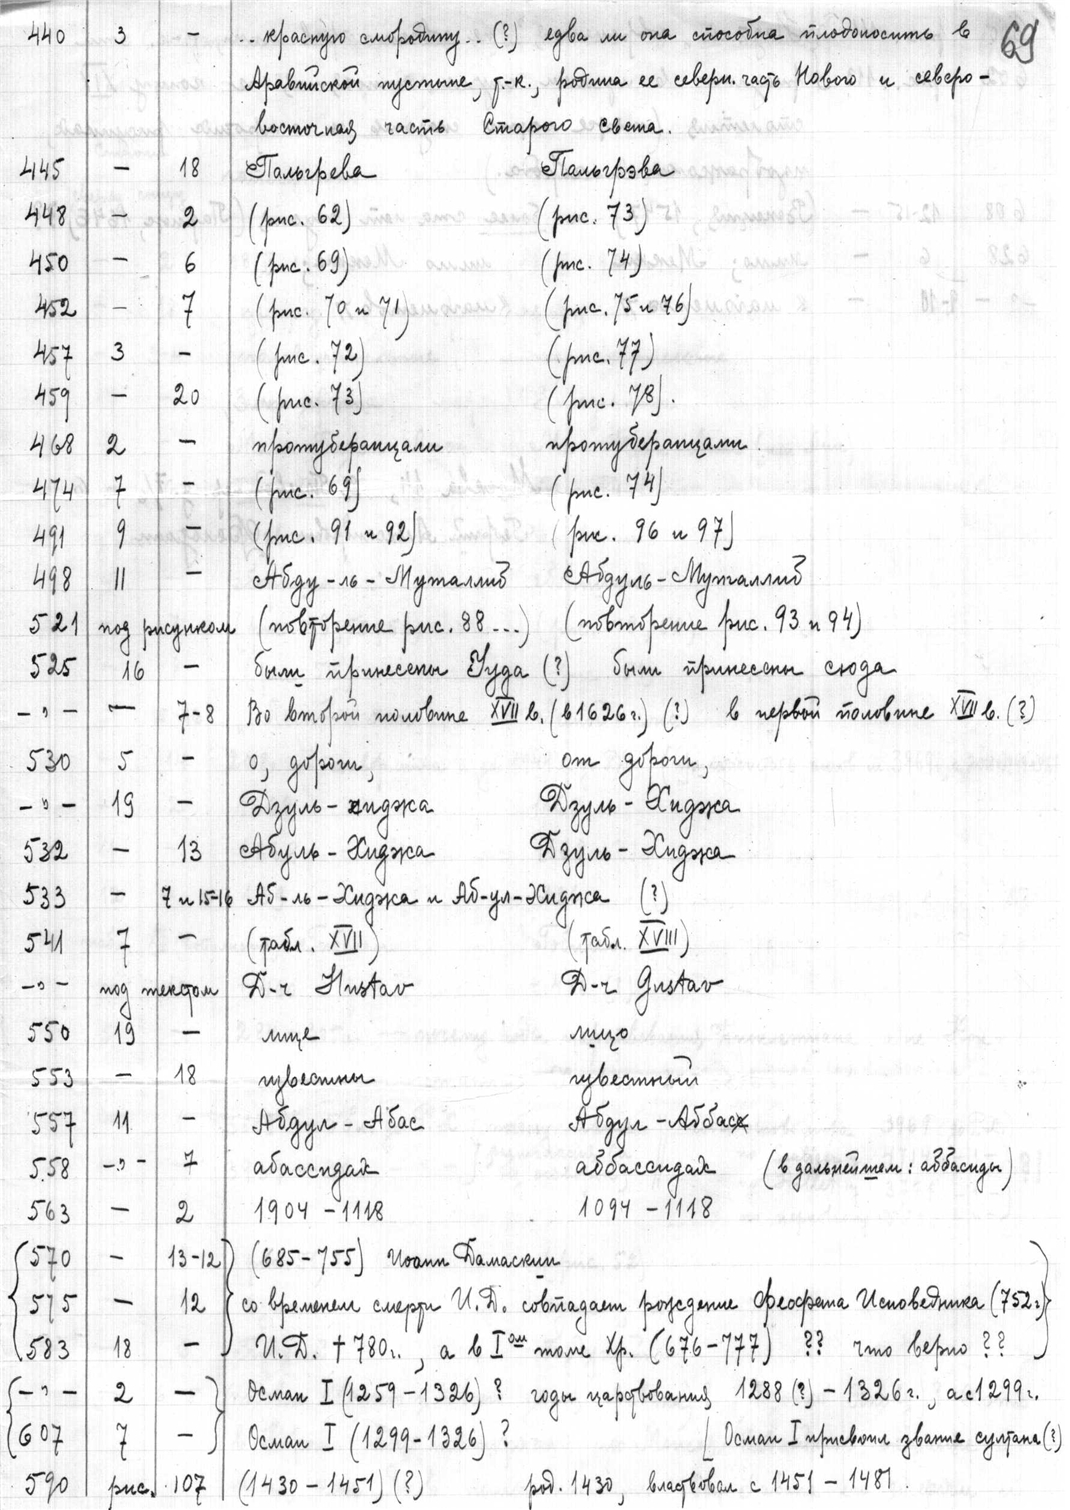 69
440 3 – ..красную смородину.. (?) едва ли она способна плодоносить в
Аравийской пустыне, т.-к., родина ее северн. часть Нового и северо-
восточная часть Старого света.
445 – 18 Пальгрева Пальгрэва
448 – 2 (рис. 62) (рис. 73)
450 – 6 (рис. 69) (рис. 74)
452 – 7 (рис. 70 и 71) (рис. 75 и 76)
457 3 – (рис. 72) (рис. 77)
459 – 20 (рис. 73) (рис. 78).
468 2 – протуберанцали протуберанцами
474 7 – (рис. 69) (рис. 74)
491 9 – (рис. 91 и 92) (рис. 96 и 97)
498 11 – Абду-ль-Муталлиб Абдуль-Мутталлиб
521 под рисунком (повторение рис. 88 ...) (повторение рис. 93 и 94)
525 16 – были принесены Іуда (?) были принесены сюда
–"– – 7-8 Во второй половине XVII в. (в 1626 г.) (?) в первой половине XVII в. (?)
530 5 – о, дороги, от дороги,
–"– 19 – Дзуль-хиджа Дзуль-Хиджа
532 – 13 Абуль-Хиджа Дзуль-Хиджа
533 – 7 и 15-16 Аб-ль-Хиджа и Аб-ул-Хиджа (?)
541 7 – (табл. XVII) (табл. XVIII)
–"– под текстом Д-ч Hustav Д-ч Gustav
550 19 – лице лицо
553 – 18 известны известный
557 11 – Абдул-Абас Абдул-Аббас
558 –"– 7 абассидах аббассидах (в дальнейшем: аббасиды)
563 – 2 1904-1118 1094-1118
570 – 13-12 (685-755) Иоанн Дамаскин
575 – 12 со временем смерти И.Д. совпадает рождение Феофана Исповедника (752 г.)
583 18 – И.Д. † 780 г., а в I ом томе Хр. (676-777) ?? что верно ??
–"– 2 – Осман I (1259-1326) ? годы царствования 1288 (?) - 1326 г., а с 1299 г.
607 7 – Осман I (1299-1326) ? [Осман I присвоил звание султана (?)
590 рис. 107 (1430-1451) (?) род. 1430, властвовал с 1451-1481.